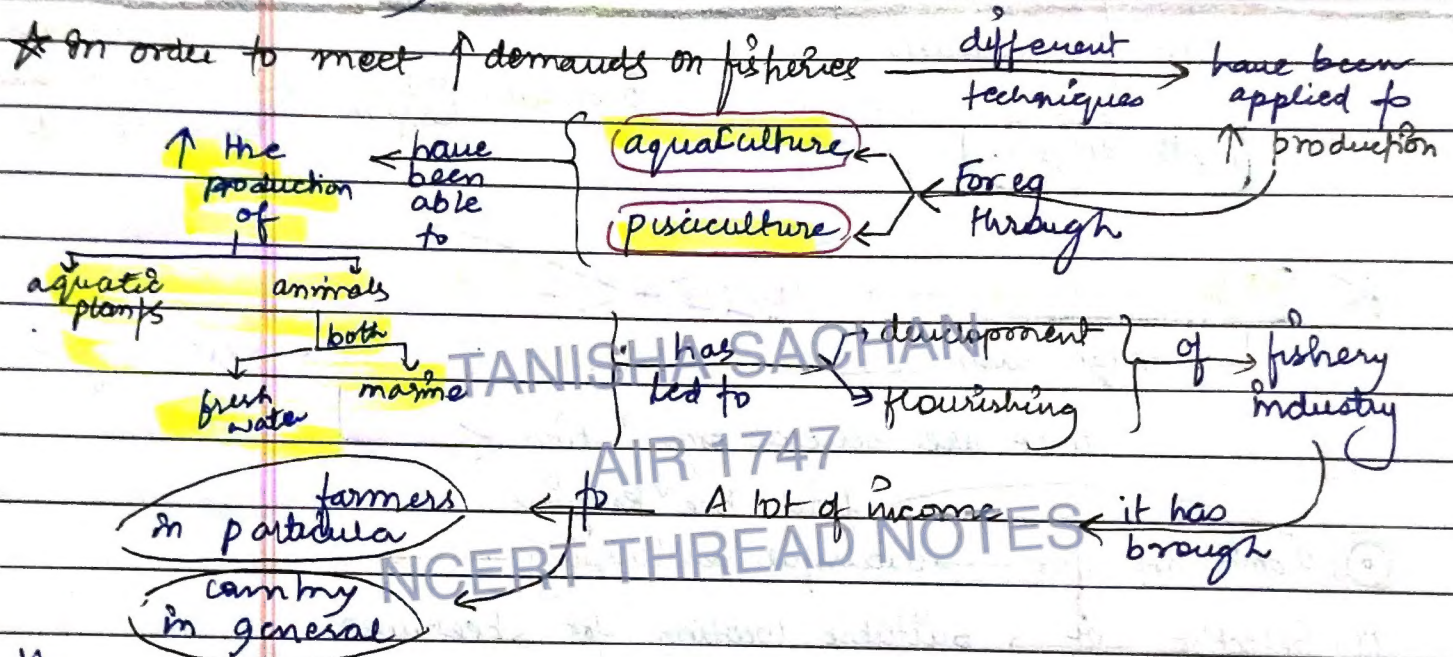 ☆ In order to meet ↑ demands on fisheries
different
techniques
have been
applied to
↑ production
For eg
through
aquaculture
pisciculture
have
been
able
to
↑ the
production
of
aquatic
plants
animals
both
fresh
water
marine
has
led to
development
flourishing
of
fishery
industry
it has
brough
A lot of income
to
farmers
in particula
country
in general
TANISHA SACHAN
AIR 1747
NCERT THREAD NOTES